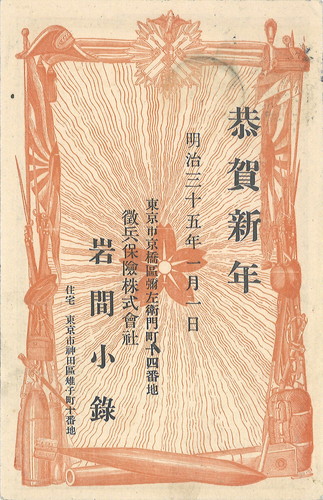 恭賀新年
明治三十五年一月一日
東京市京橋區彌左衛門町十四番地
徴兵保險株式會社
岩間小錄
住宅 東京市神田區雉子町十番地